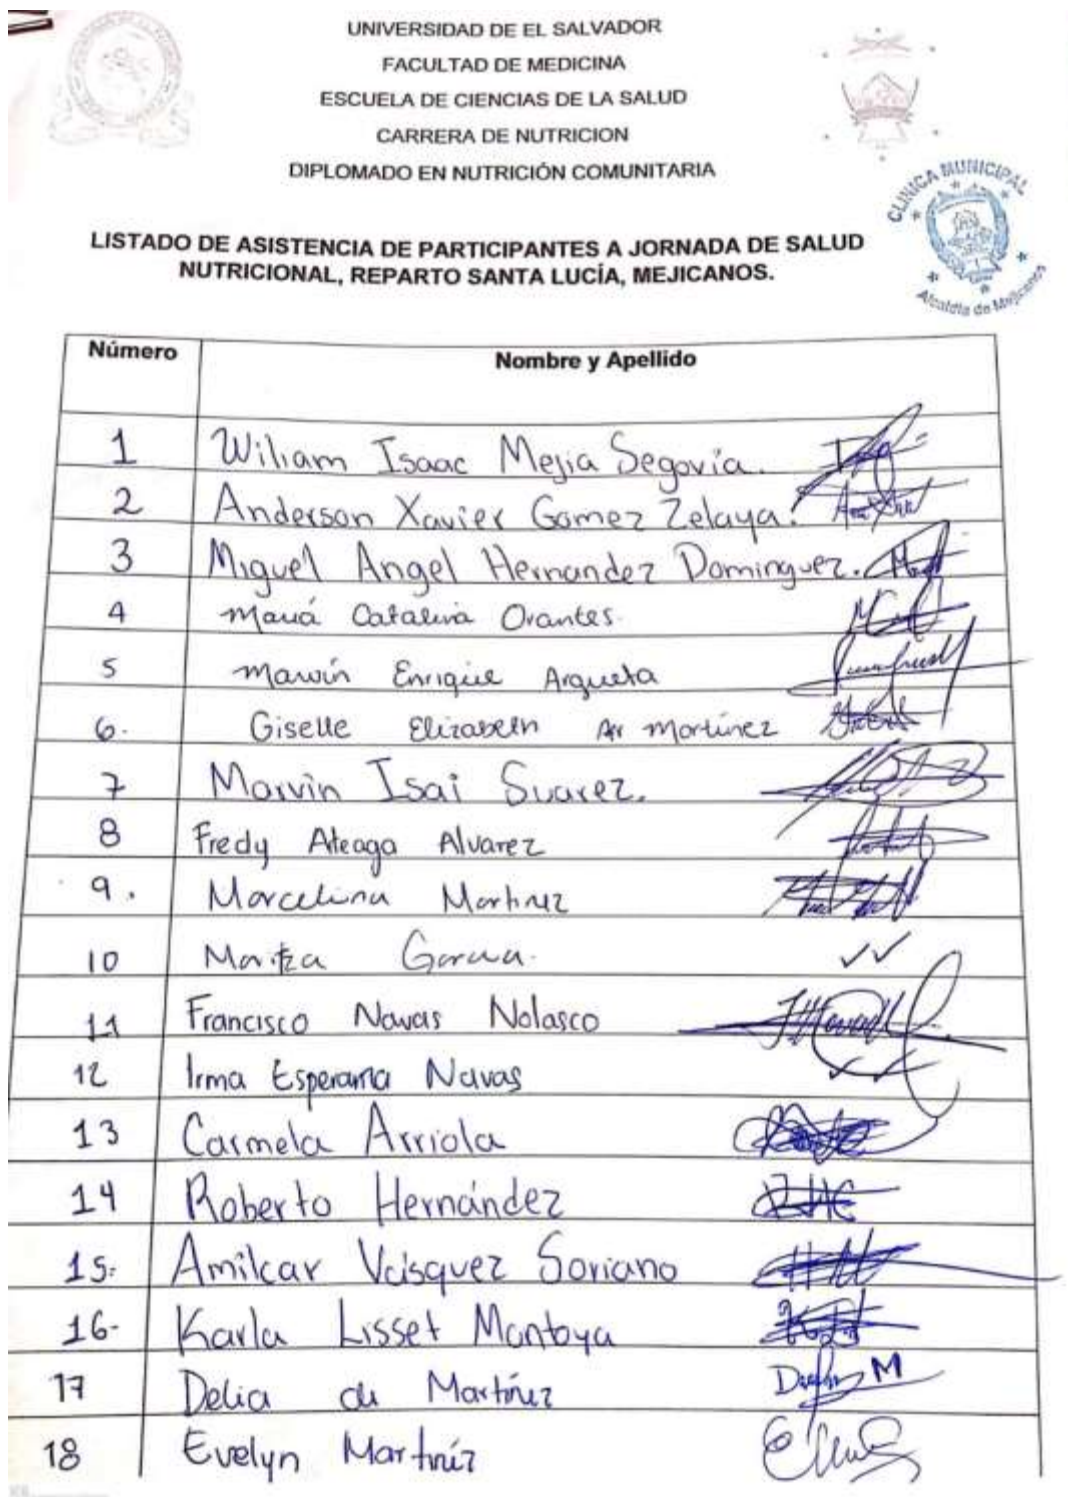 UNIVERSIDAD DE EL SALVADOR
FACULTAD DE MEDICINA
ESCUELA DE CIENCIAS DE LA SALUD
CARRERA DE NUTRICION
DIPLOMADO EN NUTRICIÓN COMUNITARIA
CLINICA MUNICIPAL
Alcaldía de Mejicanos
LISTADO DE ASISTENCIA DE PARTICIPANTES A JORNADA DE SALUD
NUTRICIONAL, REPARTO SANTA LUCÍA, MEJICANOS.
Número Nombre y Apellido
1 Wiliam Isaac Mejia Segovia.
2 Anderson Xavier Gomez Zelaya.
3 Miguel Angel Hernandez Dominguez.
4 María Catalina Orantes.
5 Marvin Enrique Argueta
6. Giselle Elizabeth Martínez
7 Marvin Isai Suarez.
8 Fredy Ateaga Alvarez
9. Marcelina Martinez
10 Maritza Garcia.
11 Francisco Navas Nolasco
12 Irma Esperanza Navas
13 Carmela Arriola
14 Roberto Hernández
15. Amilcar Vásquez Soriano
16- Karla Lisset Montoya
17 Delia de Martínez
18 Evelyn Martínez